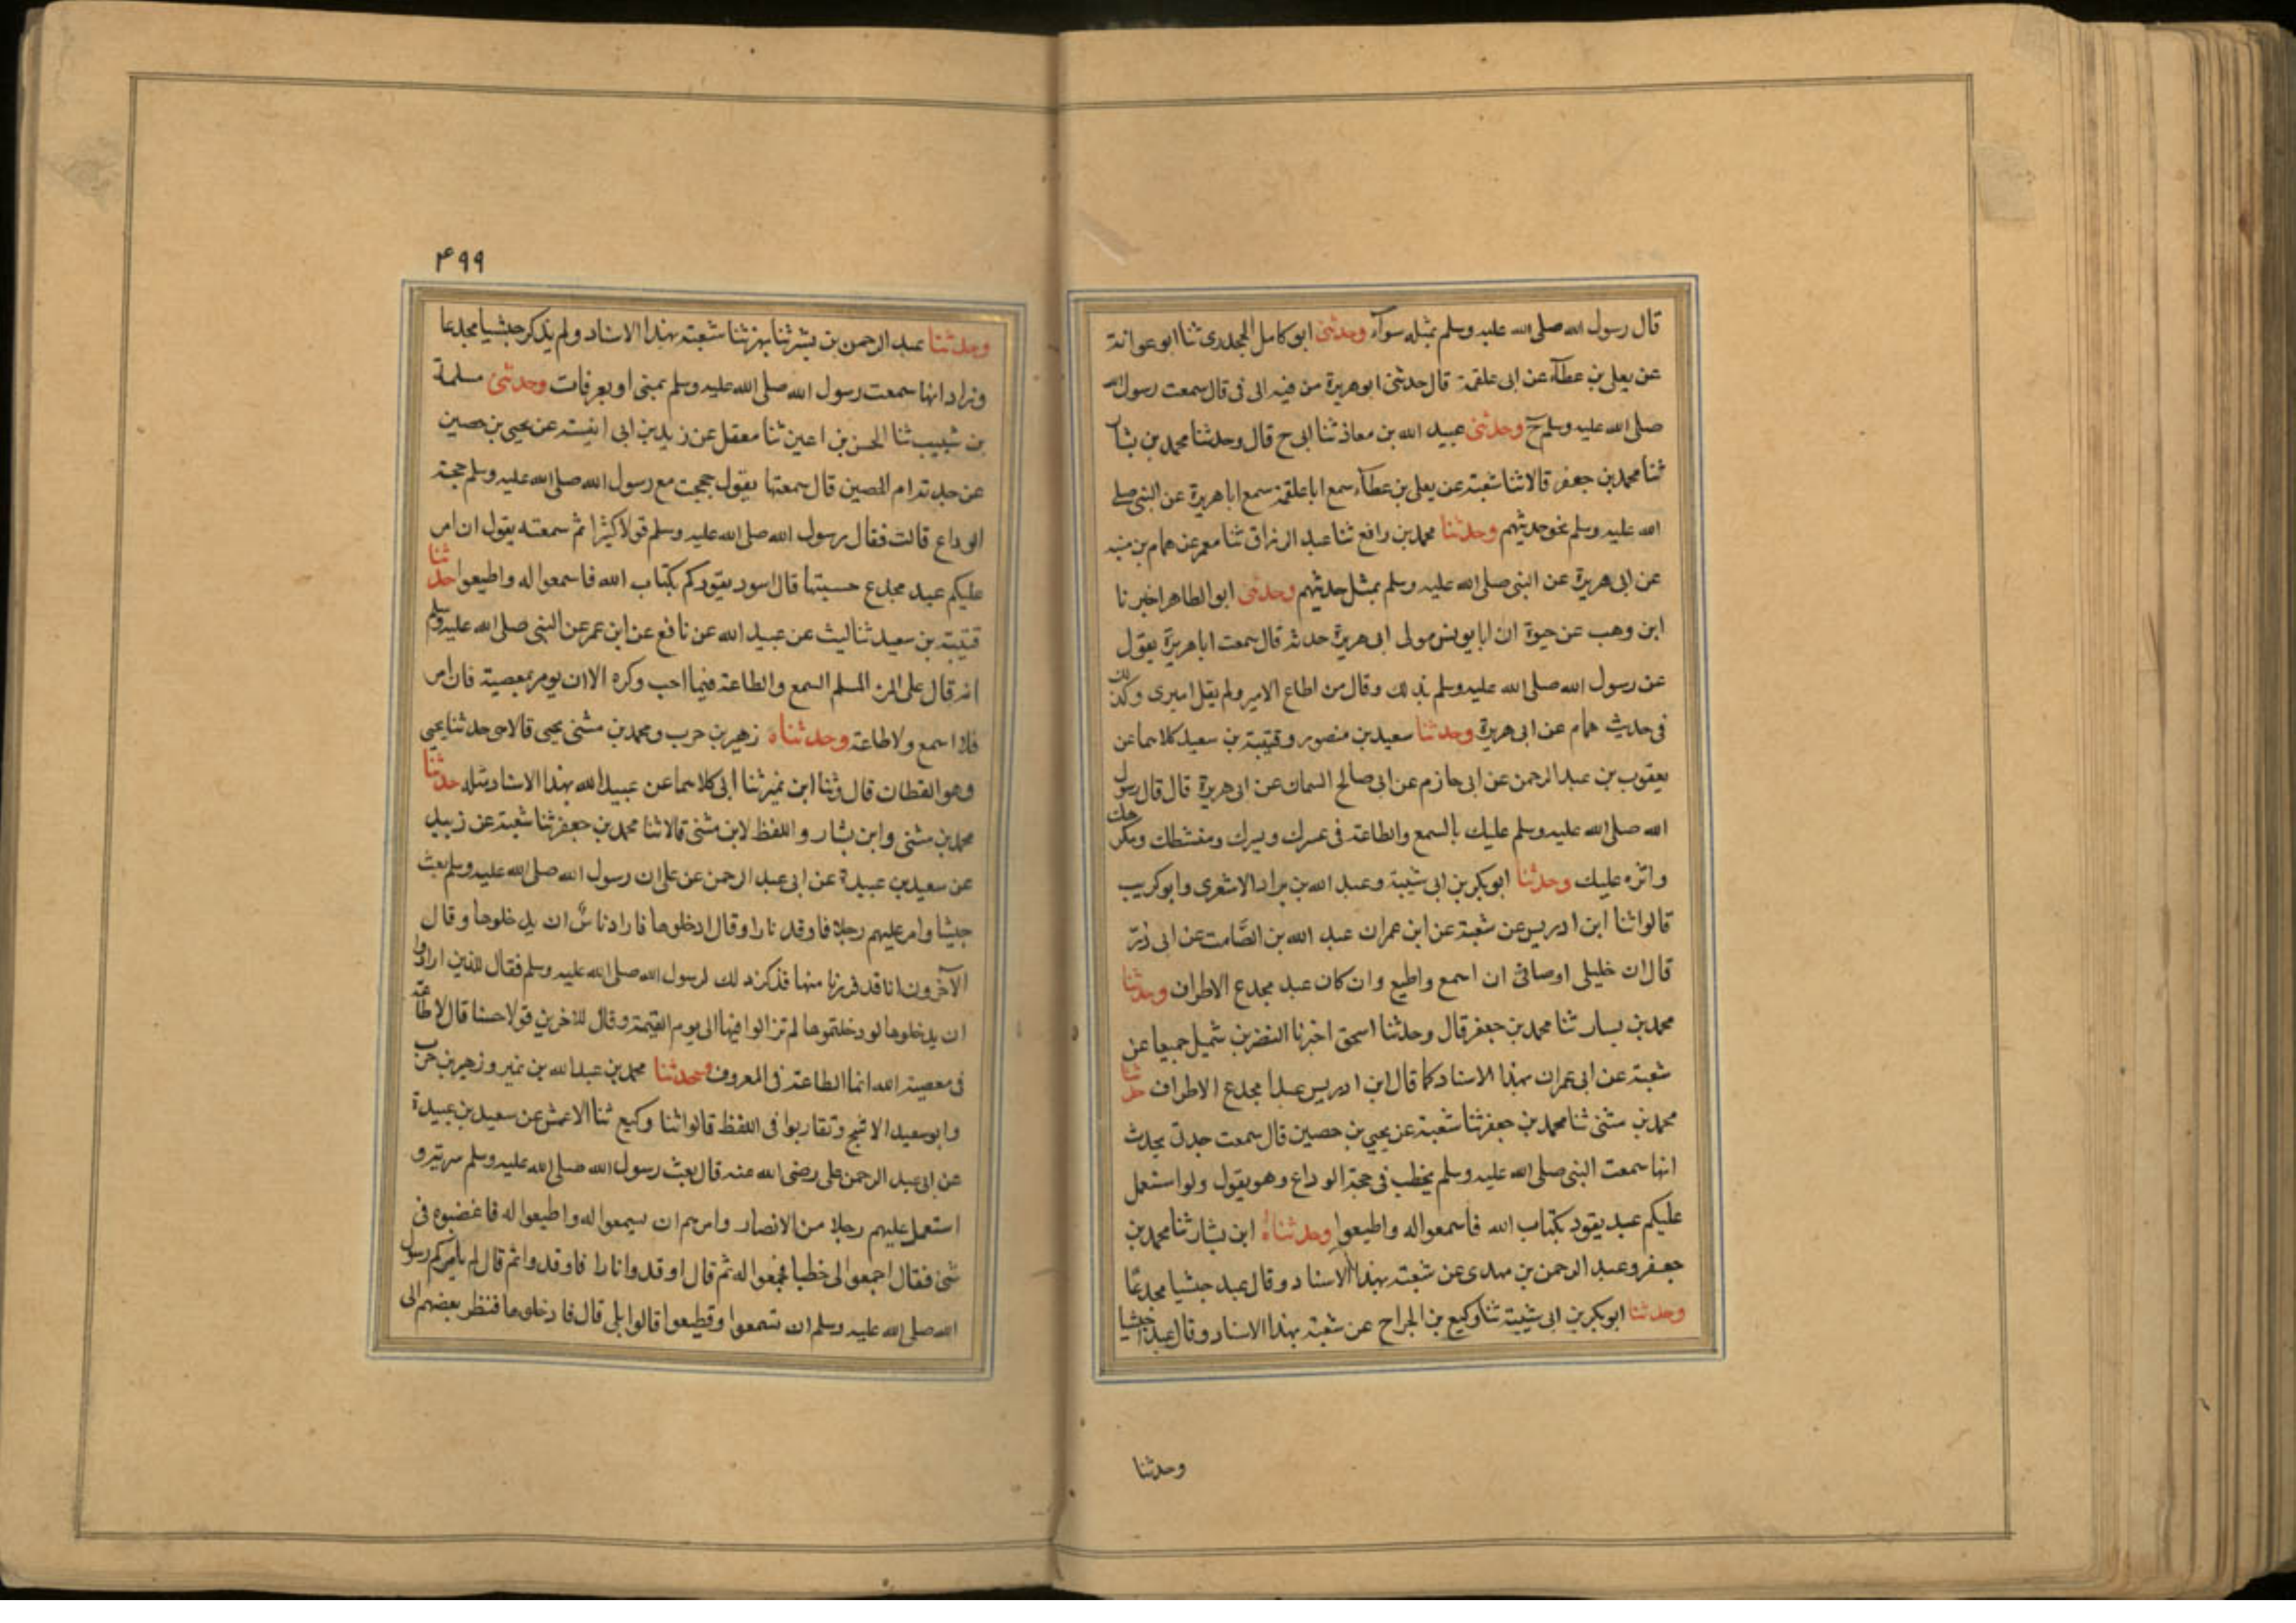 قال رسول الله صلى الله عليه وسلم بمثله سوآء وحدثنى ابو كامل الجحدرى ثنا ابو عوانة
عن يعلى بن عطآء عن ابى علقمة قال حدثنى ابو هريرة من فيه الى فى قال سمعت رسول الله
صلى الله عليه وسلم ح وحدثنى عبيد الله بن معاذ ثنا ابى ح قال وحدثنا محمد بن بشار
ثنا محمد بن جعفر قالا ثنا شعبة عن يعلى بن عطآء سمع ابا علقمة سمع ابا هريرة عن النبى صلى
الله عليه وسلم نحو حديثهم وحدثنا محمد بن رافع ثنا عبد الرزاق ثنا معمر عن همام بن منبه
عن ابى هريرة عن النبى صلى الله عليه وسلم بمثل حديثهم وحدثنى ابو الطاهر اخبرنا
ابن وهب عن حيوة ان ابا يونس مولى ابى هريرة حدثه قال سمعت ابا هريرة يقول
عن رسول الله صلى الله عليه وسلم بذلك وقال من اطاع الامير ولم يقل اميرى وكذلك
فى حديث همام عن ابى هريرة وحدثنا سعيد بن منصور وقتيبة بن سعيد كلاهما عن
يعقوب بن عبد الرحمن عن ابى حازم عن ابى صالح السمان عن ابى هريرة قال قال رسول
الله صلى الله عليه وسلم عليك بالسمع والطاعة فى عسرك ويسرك ومنشطك ومكرهك
واثره عليك وحدثنا ابو بكر بن ابى شيبة وعبد الله بن براد الاشعرى وابو كريب
قالوا ثنا ابن ادريس عن شعبة عن ابن عمران عبد الله بن الصَّامت عن ابى ذرّ
قال ان خليلى اوصانى ان اسمع واطيع وان كان عبد مجدع الاطراف وحدثنا
محمد بن بسار ثنا محمد بن جعفر قال وحدثنا اسحق اخبرنا النضر بن شميل جميعا عن
شعبة عن ابى عمران بهذا الاسناد كما قال ابن ادريس عبدا مجدع الاطراف حدثنا
محمد بن مثنى ثنا محمد بن جعفر ثنا شعبة عن يحيى بن حصين قال سمعت جدتى يحدث
انها سمعت النبى صلى الله عليه وسلم يخطب فى حجة الوداع وهو يقول ولو استعمل
عليكم عبد يقود بكتاب الله فاسمعوا له واطيعوا وحدثناهُ ابن بشار ثنا محمد بن
جعفر وعبد الرحمن بن مهدى عن شعبة بهذا الاسناد وقال عبد حبشيا مجدعًا
وحدثنا ابو بكر بن ابى شيبة ثنا وكيع بن الجراح عن شعبة بهذا الاسناد وقال عبد احبشيا
وحدثنا
۴۹۹
وحدثنا عبد الرحمن بن بشر ثنا بهز ثنا شعبة بهذا الاسناد ولم يذكر حبشيا مجدعا
وزاد انها سمعت رسول الله صلى الله عليه وسلم بمنى او بعرفات وحدثنى مسلمة
بن شبيب ثنا الحسن بن اعين ثنا معقل عن زيد بن ابى انيسة عن يحيى بن حصين
عن جدته ام الحصين قال سمعتها يقول حججت مع رسول الله صلى الله عليه وسلم حجة
الوداع قالت فقال رسول الله صلى الله عليه وسلم قولا كثيرا ثم سمعته يقول ان امر
عليكم عبد مجدع حسبتها قال اسود يقودكم بكتاب الله فاسمعوا له واطيعوا حدثنا
قتيبة بن سعيد ثنا ليث عن عبيد الله عن نافع عن ابن عمر عن النبى صلى الله عليه وسلم
انه قال على المرء المسلم السمع والطاعة فيما احب وكره الا ان يومر بمعصية فان امر
فلا اسمع ولا طاعة وحدثناه زهير بن حرب ومحمد بن مثنى يحيى قالا حدثنا يحيى
وهو القطان قال وثنا ابن نمير ثنا ابى كلاهما عن عبيد الله بهذا الاسناد مثله حدثنا
محمد بن مثنى وابن بشار واللفظ لابن مثنى قالا ثنا محمد بن جعفر ثنا شعبة عن زبيد
عن سعيد بن عبيدة عن ابى عبد الرحمن عن على ان رسول الله صلى الله عليه وسلم بعث
جيشا وامر عليهم رجلا فاوقد نارا وقال ادخلوها فاراد ناسٌ ان يدخلوها وقال
الآخرون انا قد فررنا منها فذكر ذلك لرسول الله صلى الله عليه وسلم فقال للذين ارادوا
ان يدخلوها لو دخلتموها لم تزالوا فيها الى يوم القيمة وقال للآخرين قولا حسنا قال لا طاعة
فى معصية الله انما الطاعة فى المعروف وحدثنا محمد بن عبد الله بن نمير وزهير بن حرب
وابو سعيد الاشج وتقاربوا فى اللفظ قالوا ثنا وكيع ثنا الاعمش عن سعيد بن عبيدة
عن ابى عبد الرحمن على رضى الله عنه قال بعث رسول الله صلى الله عليه وسلم سرية و
استعمل عليهم رجلا من الانصار وامرهم ان يسمعوا له واطيعوا له فاغضبوه فى
شئ فقال اجمعوا لى خطبا فجمعوا له ثم قال اوقدوا نارا فاوقدوا ثم قال الم يامركم رسول
الله صلى الله عليه وسلم ان تسمعوا وتطيعوا قالوا بلى قال فادخلوها فنظر بعضهم الى